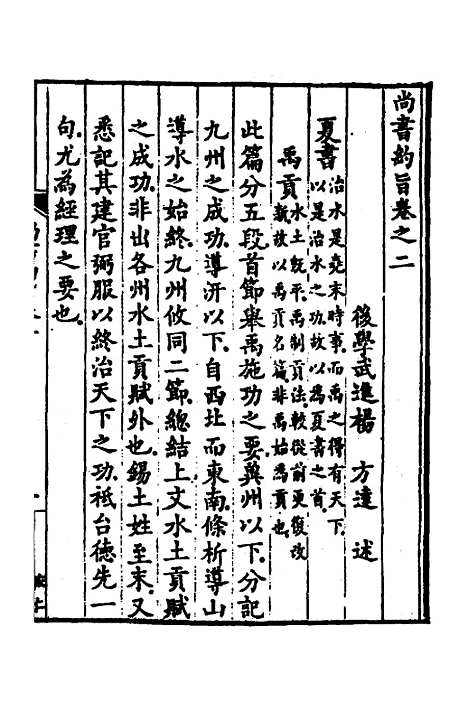 尚書約旨卷之二
後學武進楊 方達 述
夏書治水是堯末時事而禹之得有天下
以是治水之功故以為夏書之首
禹貢水土既平禹制貢法較從前更復改
新故以禹貢名篇非禹始為貢也
此篇分五段首節舉禹施功之要冀州以下分記
九州之成功導汧以下自西北而東南條析導山
導水之始終九州攸同二節總結上文水土貢賦
之成功非出各州水土貢賦外也錫土姓至末又
悉記其建官弼服以終治天下之功祗台德先一
句尤為經理之要也